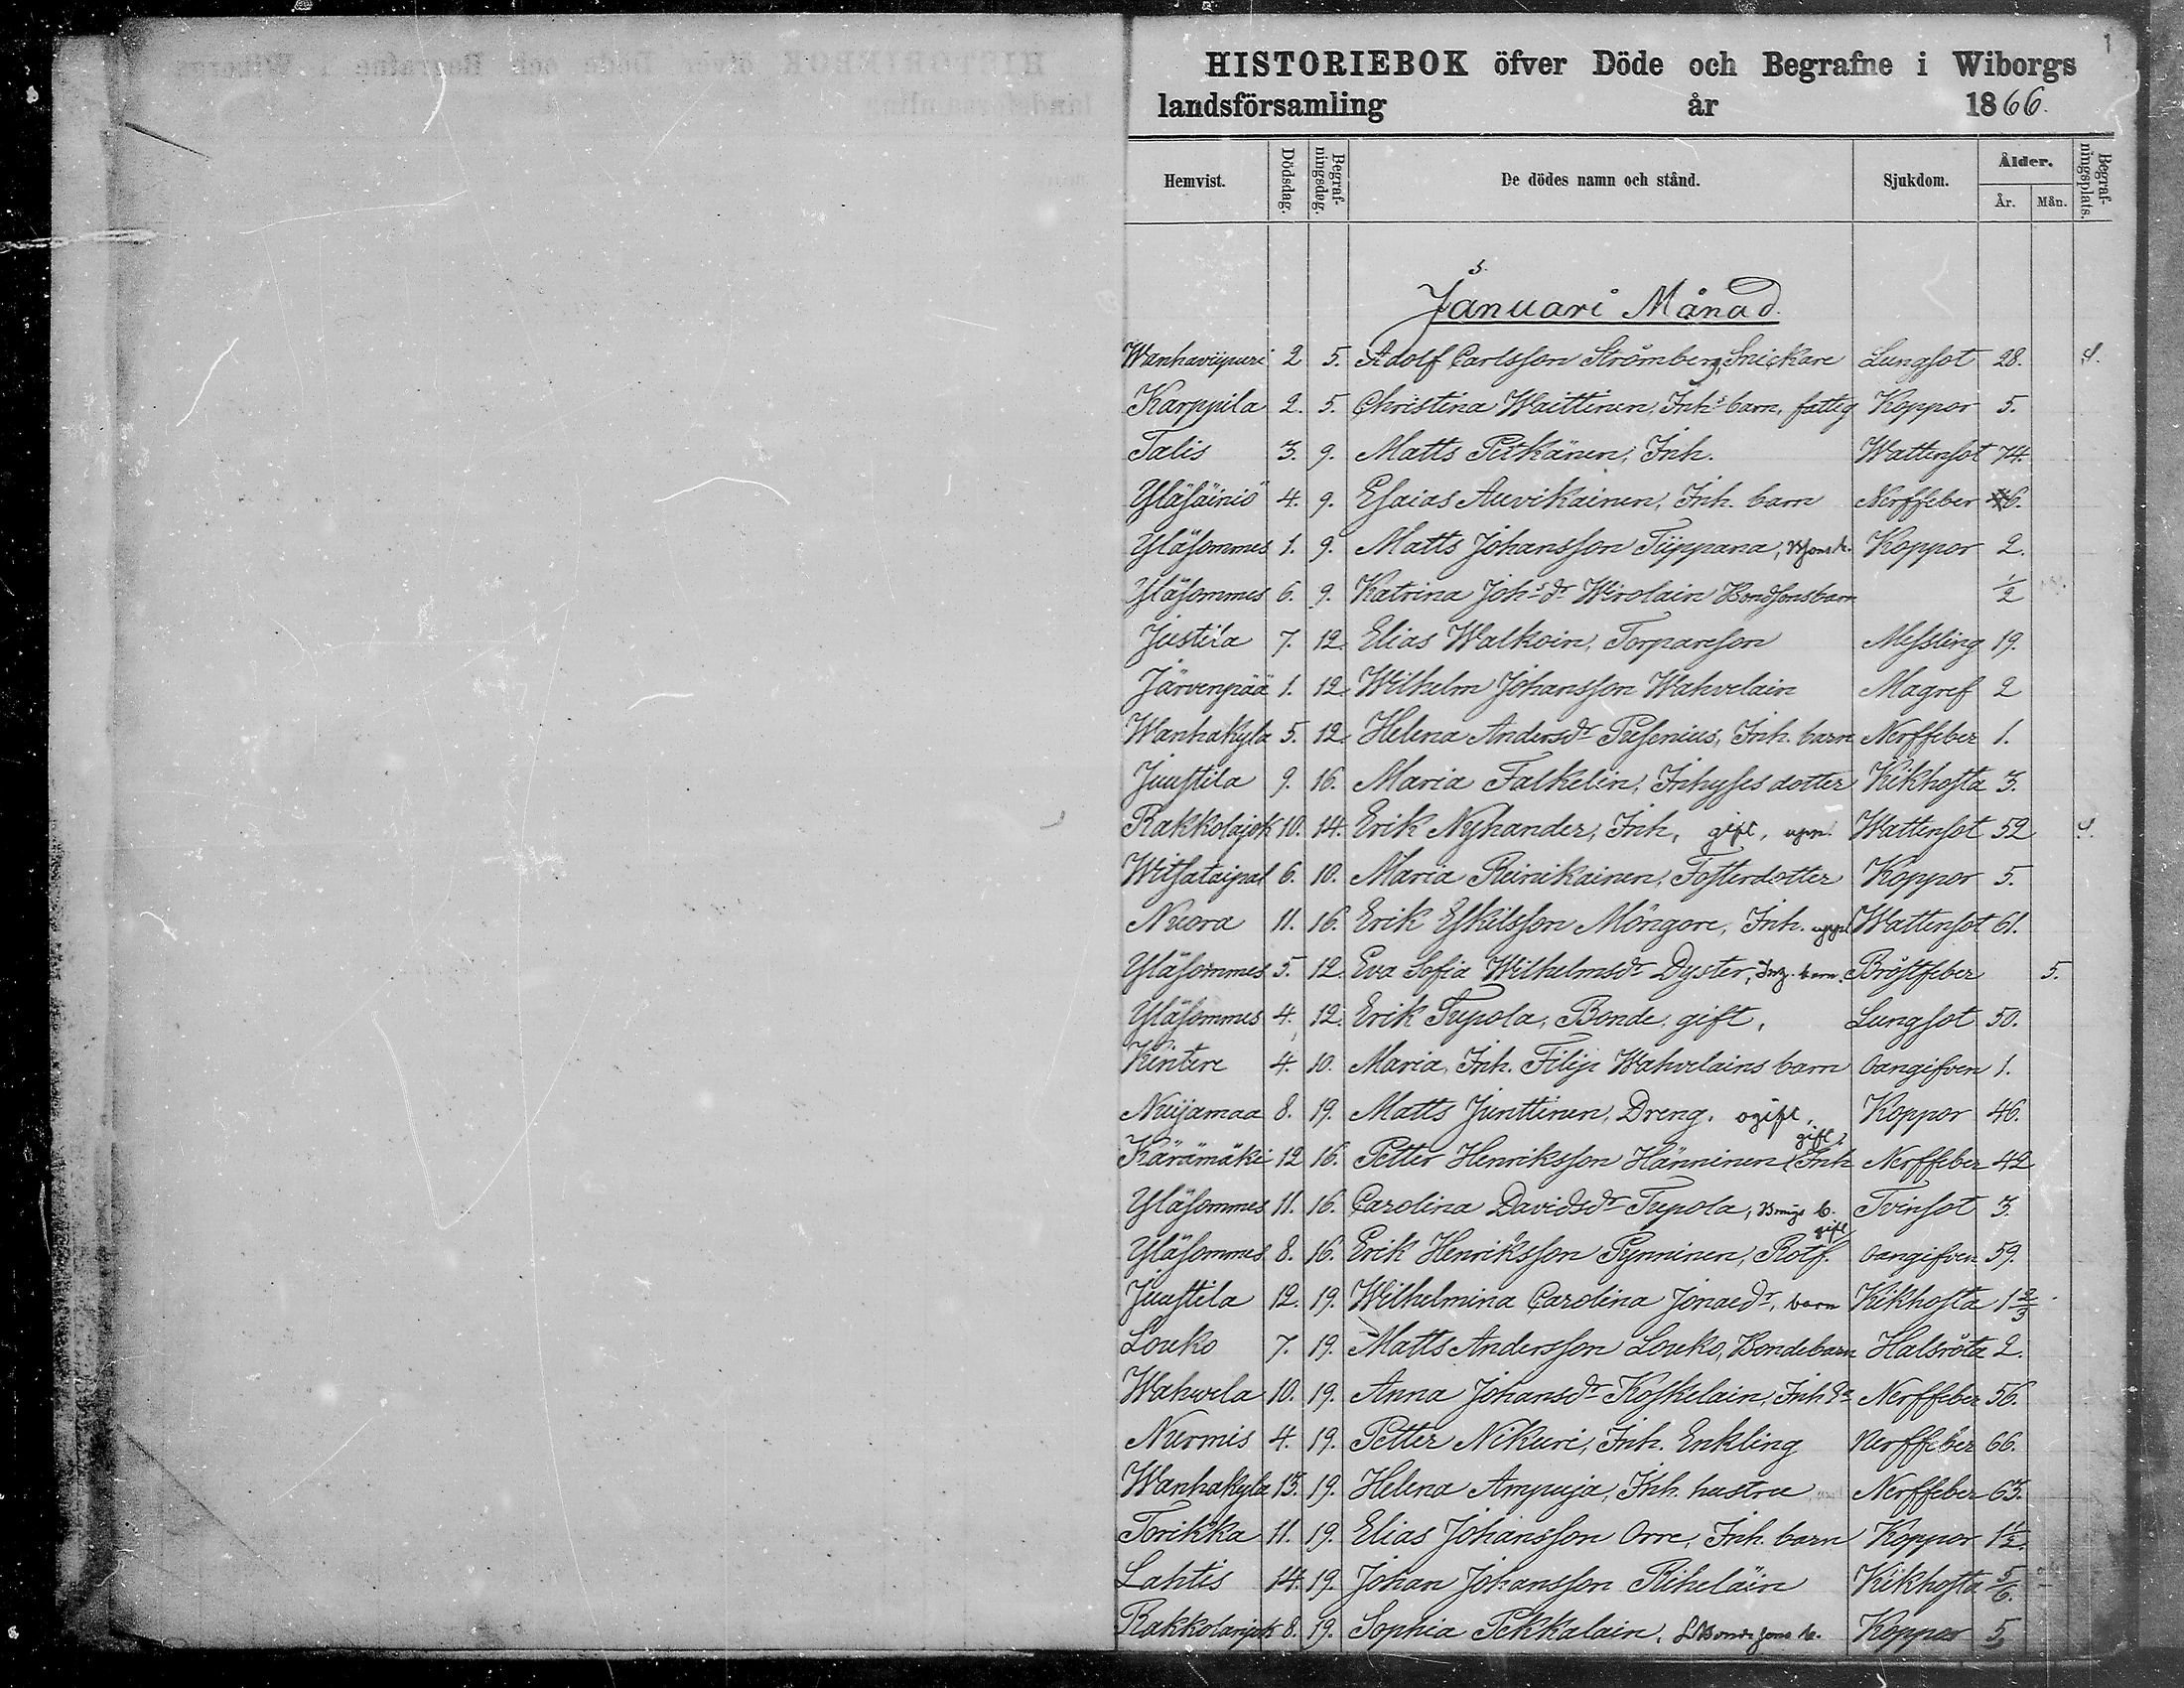 1
HISTORIEBOK öfver Döde och Begrafne i Wiborgs
landsförsamling år 1866.
Hemvist. Dödsdag. Begrafningsdag. De dödes namn och stånd. Sjukdom. Ålder. År. Mån. Begrafningsplats.
Januari Månad.
Wanhaviipuri 2 5. Adolf Carlsson Strömberg, Snickare Lungsot 28.
Karppila 2. 5. Christina Waittinen, Inhs barn, fattig Koppor 5.
Talis 3. 9. Matts Pitkänen, Inh. Wattensot 74.
Yläsäiniö 4. 9. Esaias Auvikainen, Inh. barn Nerffeber 6.
Yläsommes 1. 9. Matts Johansson Tiippana, Koppor 2.
Yläsommes 6. 9. Katrina Johsdr Wirolain Bondsonsbarn 1/2
Justila 7. 12. Elias Walkoin, Torpareson Messling 19.
Järvenpää 1. 12 Wilhelm Johansson Wahvelain Magref 2
Wanhakyla 5. 12. Helena Andersdr Pusenius, Inh. barn Nerffeber 1.
Juustila 9. 16. Maria Falkelin, Inhyses dotter Kikhosta 3.
Rakkolajok 10. 14. Erik Nyhander, Inh, gift, Wattensot 52
Witsataipal 6. 10. Maria Reinikainen, Fosterdotter Koppor 5.
Nuora 11. 16. Erik Eskilsson Möngäre, Inh. Wattensot 61.
Yläsommes 5. 12. Eva Sofia Wilhelmsdr Dyster, barn. Bröstfeber 5.
Yläsommes 4. 12. Erik Tupola, Bonde, gift, Lungsot 50.
Kintere 4. 10. Maria, Inh. Filip Wahvelains barn Oangifven 1.
Nuijamaa 8. 19. Matts Junttinen, Dreng, ogift, Koppor 46.
Kärämäki 12 16. Petter Henriksson Hänninen, gift, Inh Nerffeber 42
Yläsommes 11. 16. Carolina Davidsdr Tupola, b. Tvinsot 3.
Yläsommes 8. 16. Erik Henriksson Pynninen, Rotf. gift Oangifven 59.
Juustila 12. 19. Wilhelmina Carolina Jonaedr, barn Kikhosta 1 2/3
Louko 7. 19. Matts Andersson Louko, Bondebarn Halsröta 2.
Wahvela 10. 19. Anna Johansdr Koskelain, Inh Nerffeber 56.
Nurmis 4. 19. Petter Nikuri, Inh. Enkling Nerffeber 66.
Wanhakyla 15. 19. Helena Ampuja, Inh. hustru Nerffeber 63.
Torikka 11. 19. Elias Johansson Orre, Inh. barn Koppor 1 1/2.
Lahtis 14. 19. Johan Johansson Riheläin Kikhosta 5/6.
Rakkolanjok 8. 19. Sophia Pekkalain, Koppor 5